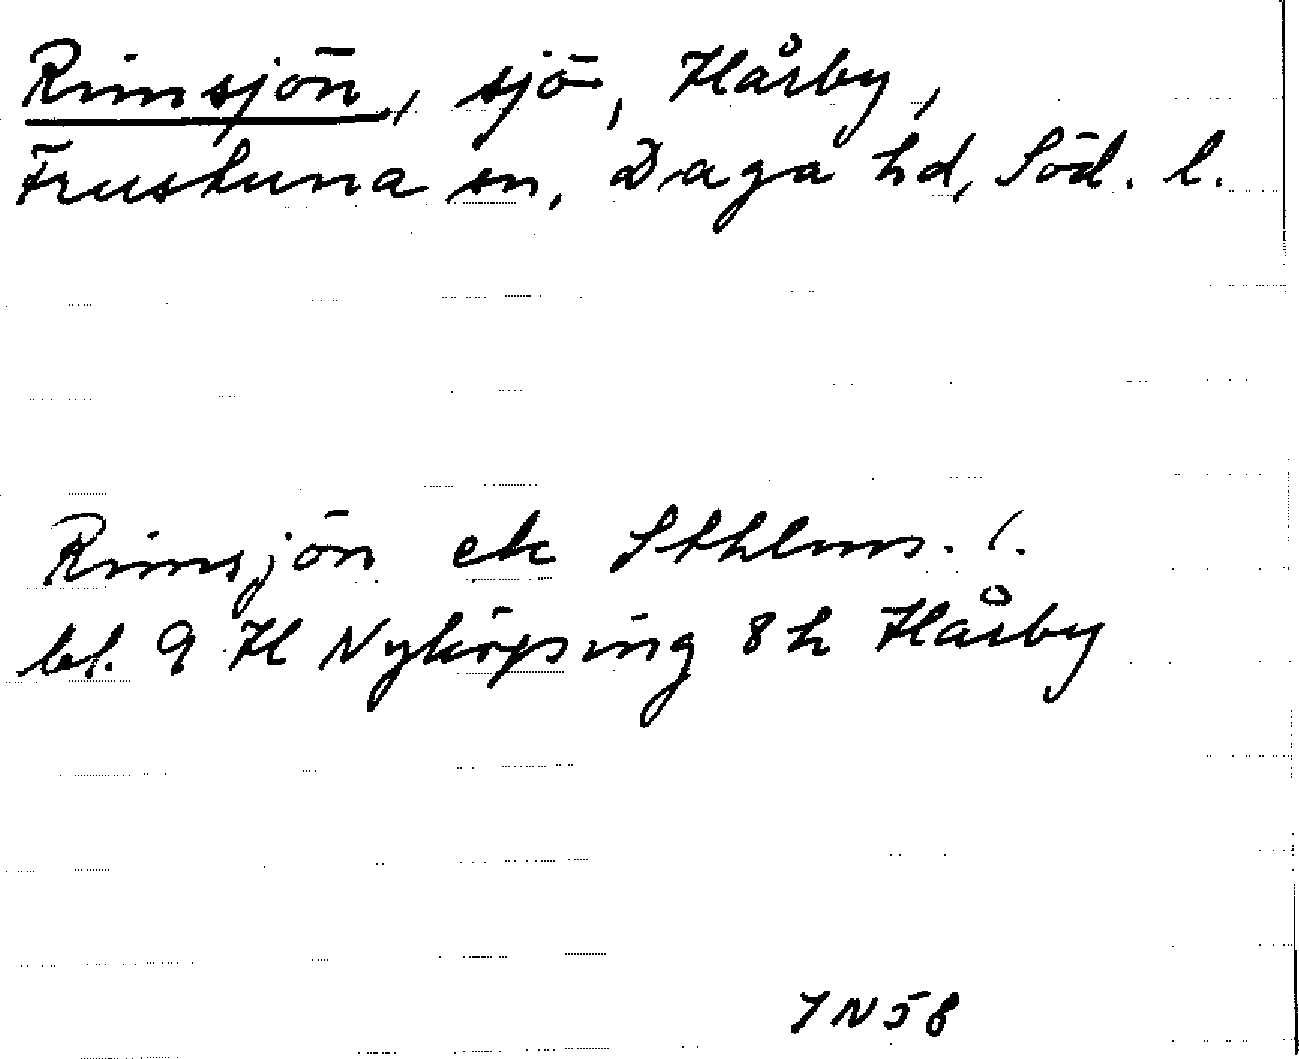 Rimsjön, sjö, Hårby,
Frustuna sn, Daga hd, Söd. l.
Rimsjön ek Sthlms. l.
bl. 9 H Nyköping 8 h Hårby
IN 58